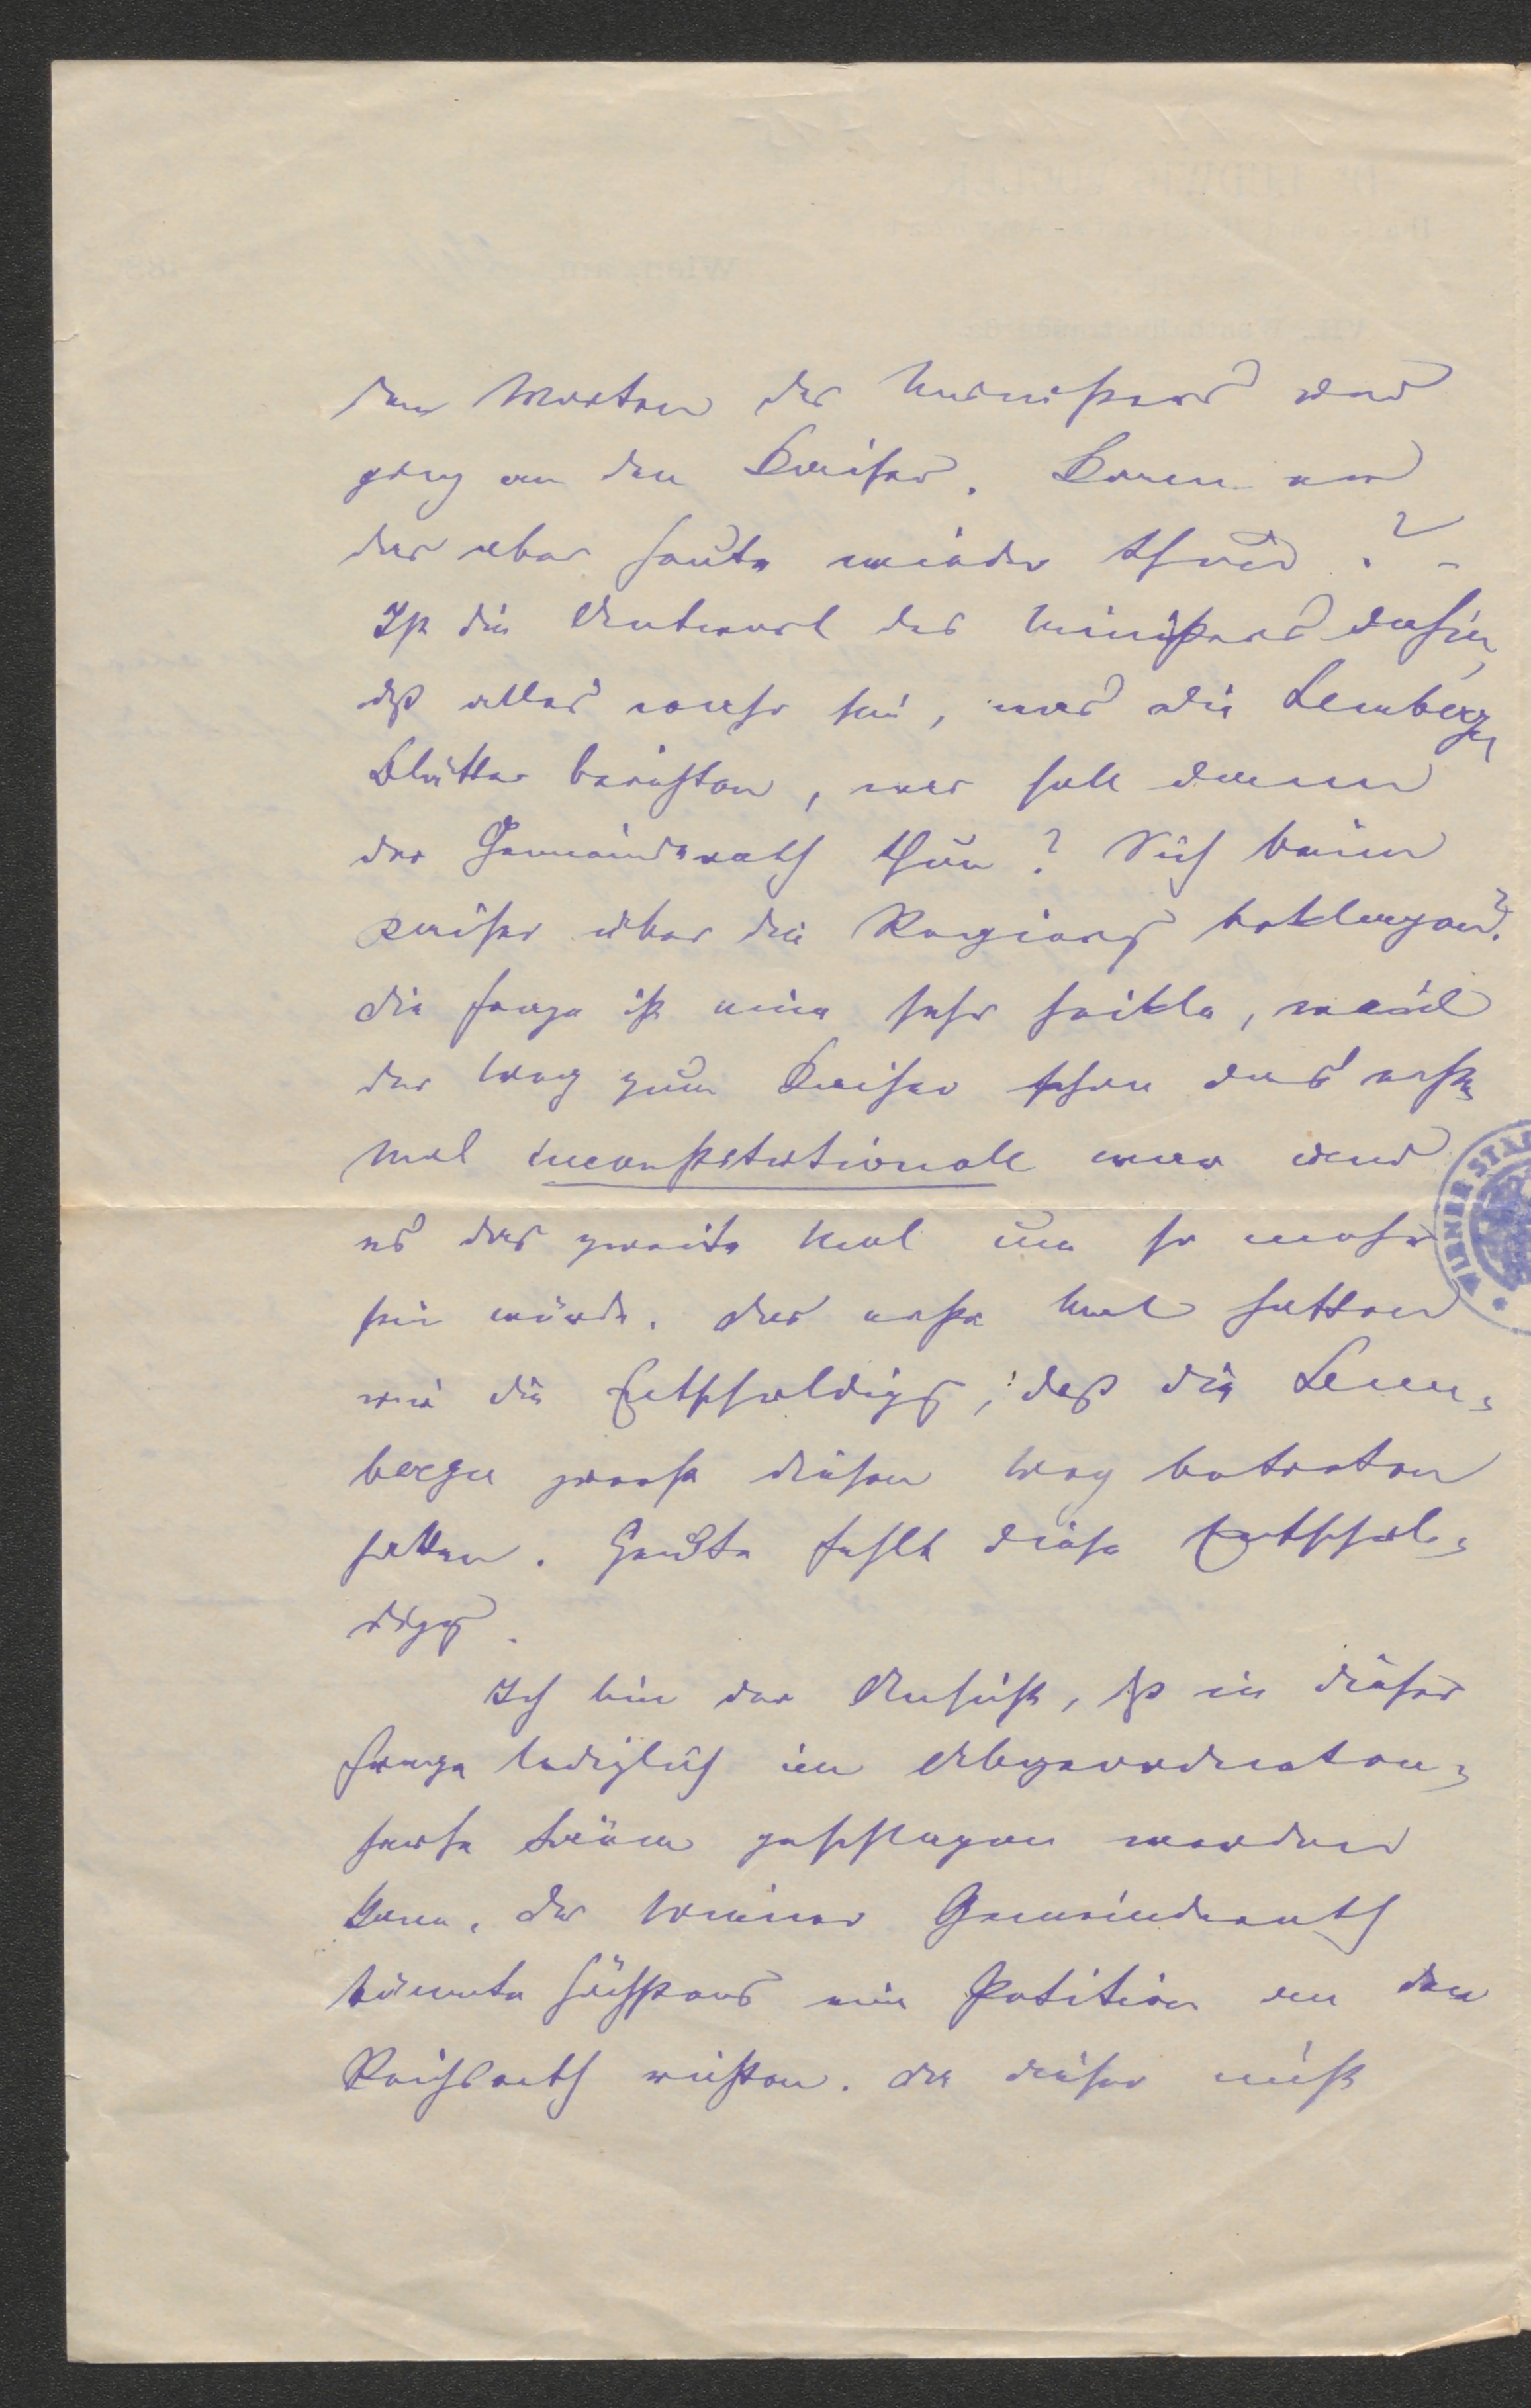 den Worten des Ministers und
ging an den Kaiser. Kann er
das aber heute wieder thun? –
Ist die Antwort des Ministers dahin,
dß alles wahr sei, was die Lemberger
Blätter berichten, was soll dann
der Gemeinderath thun? Sich beim
Kaiser über die Regierg beklagen?
Die Frage ist eine sehr heikle, weil
der Weg zum Kaiser schon das erste
Mal inconstitutionell war und
es das zweite Mal um so mehr
sein würde. Das erste Mal hatten
wir die Entschuldigg, daß die Lem-
berger zuerst diesen Weg betreten
hatten. Heute fehlt diese Entschul-
digg.
Ich bin der Ansicht, dß in dieser
Frage lediglich im Abgeordneten-
hause Lärm geschlagen werden
kann. Der Wiener Gemeinderath
könnte höchstens eine Petition an den
Reichsrath richten. Da dieser nicht
WIENER STA